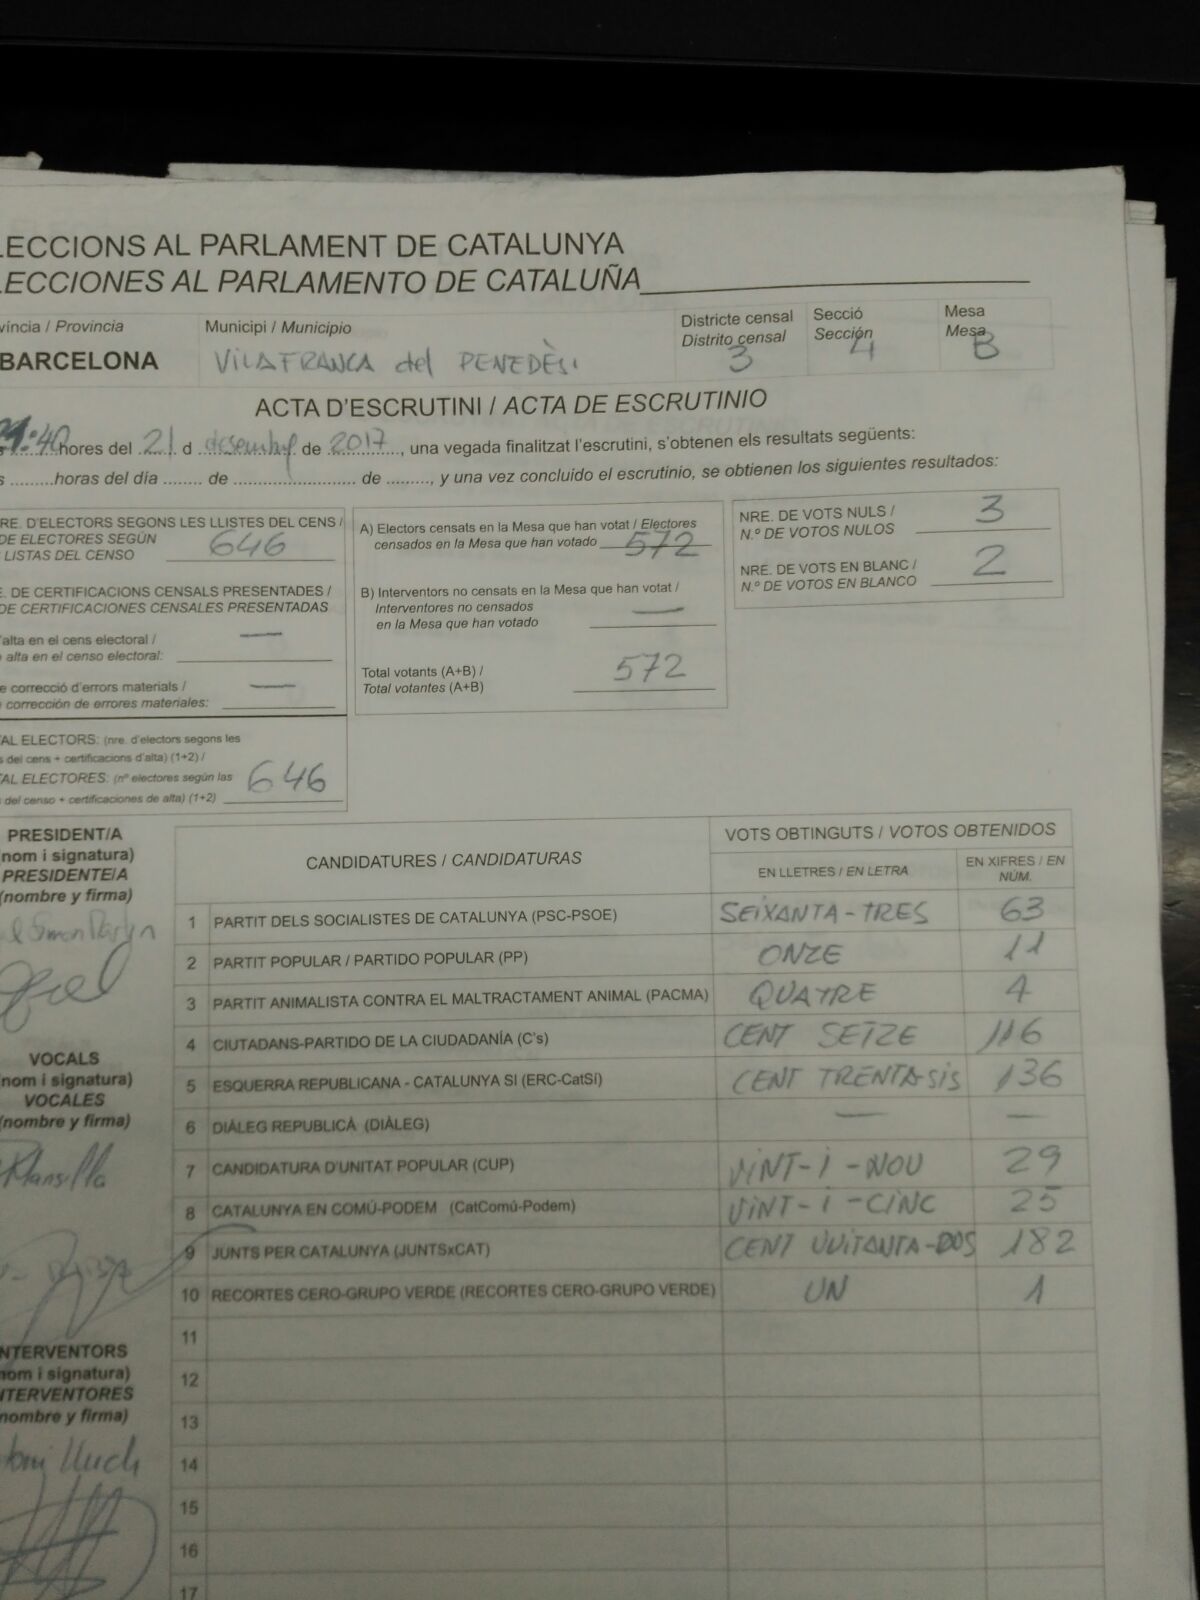 LECCIONS AL PARLAMENT DE CATALUNYA
LECCIONES AL PARLAMENTO DE CATALUÑA
víncia / Provincia
BARCELONA
Municipi / Municipio
VILAFRANCA del PENEDÈS
Districte censal
Distrito censal
3
Secció
Sección
4
Mesa
Mesa
B
ACTA D'ESCRUTINI / ACTA DE ESCRUTINIO
:40 hores del 21 d desembre de 2017, una vegada finalitzat l'escrutini, s'obtenen els resultats següents:
s .........horas del día ........ de ........................ de ........., y una vez concluido el escrutinio, se obtienen los siguientes resultados:
RE. D'ELECTORS SEGONS LES LLISTES DEL CENS /
DE ELECTORES SEGÚN
LISTAS DEL CENSO 646
. DE CERTIFICACIONS CENSALS PRESENTADES /
DE CERTIFICACIONES CENSALES PRESENTADAS
'alta en el cens electoral / —
alta en el censo electoral:
e correcció d'errors materials / —
corrección de errores materiales:
AL ELECTORS: (nre. d'electors segons les
s del cens + certificacions d'alta) (1+2) /
AL ELECTORES: (nº electores según las 646
del censo + certificaciones de alta) (1+2)
A) Electors censats en la Mesa que han votat / Electores
censados en la Mesa que han votado 572
B) Interventors no censats en la Mesa que han votat /
Interventores no censados —
en la Mesa que han votado
Total votants (A+B) / 572
Total votantes (A+B)
NRE. DE VOTS NULS / 3
N.º DE VOTOS NULOS
NRE. DE VOTS EN BLANC / 2
N.º DE VOTOS EN BLANCO
PRESIDENT/A
(nom i signatura)
PRESIDENTE/A
(nombre y firma)
VOCALS
(nom i signatura)
VOCALES
(nombre y firma)
Mansilla
NTERVENTORS
nom i signatura)
NTERVENTORES
nombre y firma)
toni Lluch
CANDIDATURES / CANDIDATURAS
VOTS OBTINGUTS / VOTOS OBTENIDOS
EN LLETRES / EN LETRA
EN XIFRES / EN
NÚM.
1 PARTIT DELS SOCIALISTES DE CATALUNYA (PSC-PSOE) SEIXANTA-TRES 63
2 PARTIT POPULAR / PARTIDO POPULAR (PP) ONZE 11
3 PARTIT ANIMALISTA CONTRA EL MALTRACTAMENT ANIMAL (PACMA) QUATRE 4
4 CIUTADANS-PARTIDO DE LA CIUDADANÍA (C's) CENT SETZE 116
5 ESQUERRA REPUBLICANA - CATALUNYA SI (ERC-CatSí) CENT TRENTA SIS 136
6 DIÀLEG REPUBLICÀ (DIÀLEG) — —
7 CANDIDATURA D'UNITAT POPULAR (CUP) VINT-I-NOU 29
8 CATALUNYA EN COMÚ-PODEM (CatComú-Podem) VINT-I-CINC 25
9 JUNTS PER CATALUNYA (JUNTSxCAT) CENT VUITANTA-DOS 182
10 RECORTES CERO-GRUPO VERDE (RECORTES CERO-GRUPO VERDE) UN 1
11
12
13
14
15
16
17